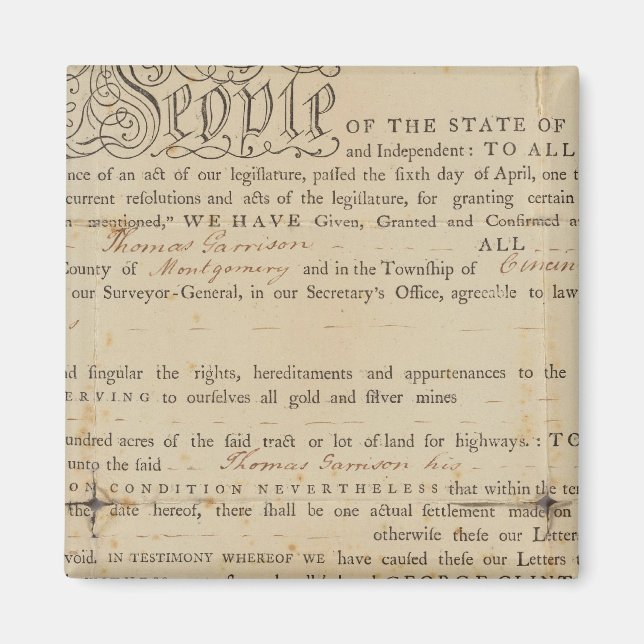 People OF THE STATE OF
and Independent: TO ALL
nce of an act of our legiſlature, paſſed the ſixth day of April, one t
current reſolutions and acts of the legiſlature, for granting certain
n mentioned," WE HAVE Given, Granted and Confirmed a
Thomas Garrison ALL
County of Montgomery and in the Townſhip of Cincin
our Surveyor-General, in our Secretary's Office, agreeable to law
s
nd ſingular the rights, hereditaments and appurtenances to the
ERVING to ourſelves all gold and ſilver mines
undred acres of the ſaid tract or lot of land for highways. : TO
unto the ſaid Thomas Garrison his
ON CONDITION NEVERTHELESS that within the ter
the date hereof, there ſhall be one actual ſettlement made on
otherwiſe theſe our Letters
void. IN TESTIMONY WHEREOF WE have cauſed theſe our Letters t
GEORGE CLINT